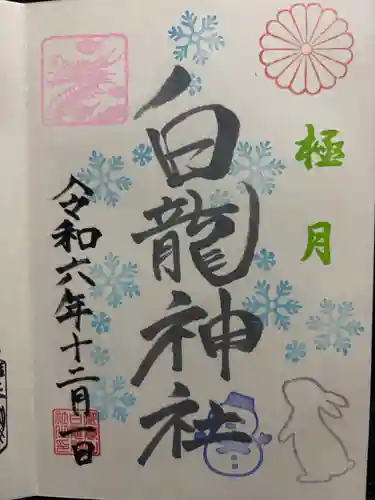 極月
白龍神社
令和六年十二月一日